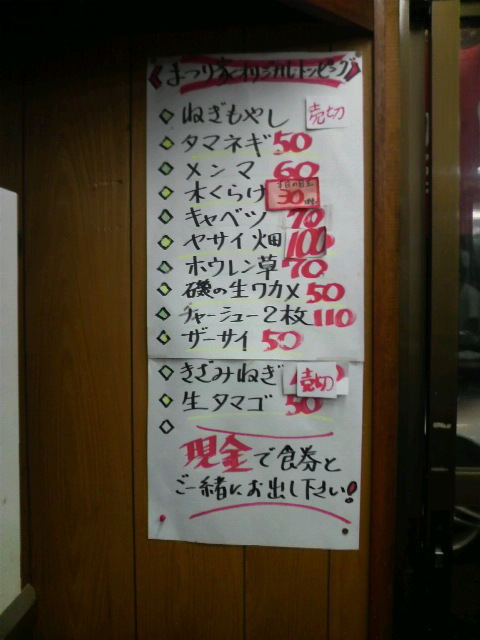 まつり家オリジナルトッピング
ねぎもやし 売切
タマネギ 50
メンマ 60
木くらげ 30
キャベツ 70
ヤサイ畑 100
ホウレン草 70
磯の生ワカメ 50
チャーシュー2枚 110
ザーサイ 50
きざみねぎ 売切
生タマゴ 50
現金で食券と
ご一緒にお出し下さい!